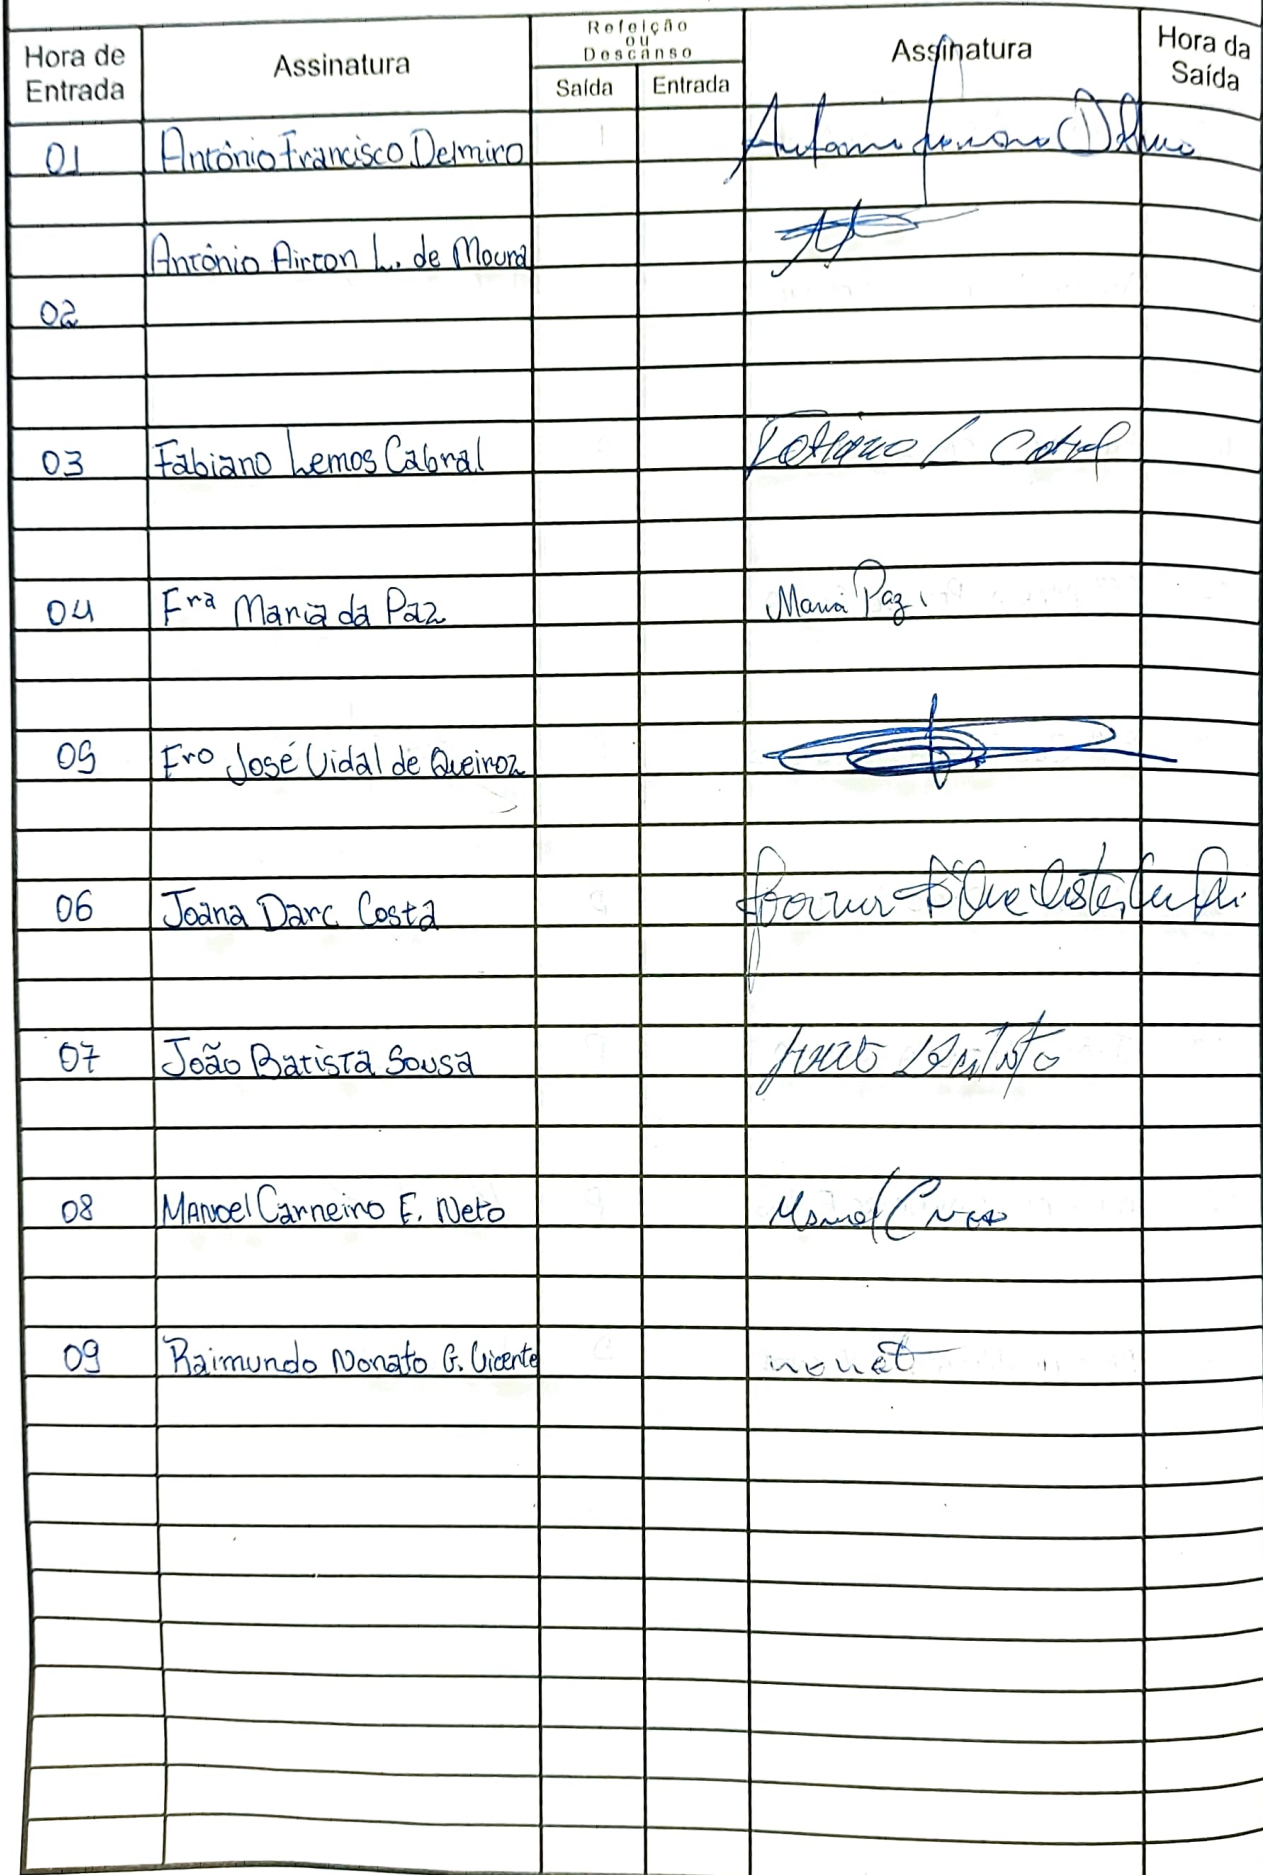 Hora de Entrada Assinatura Refeição ou Descanso Assinatura Hora da Saída
Saída Entrada
01 Antônio Francisco Delmiro
Antônio Airton L. de Moura
02
03 Fabiano Lemos Cabral Fabiano L Cabral
04 Fra Maria da Paz Maria Paz
05 Fro José Vidal de Queiroz
06 Joana Darc Costa
07 João Batista Sousa João Batista
08 Manoel Carneiro F. Neto Manoel
09 Raimundo Nonato G. Vicente nonato